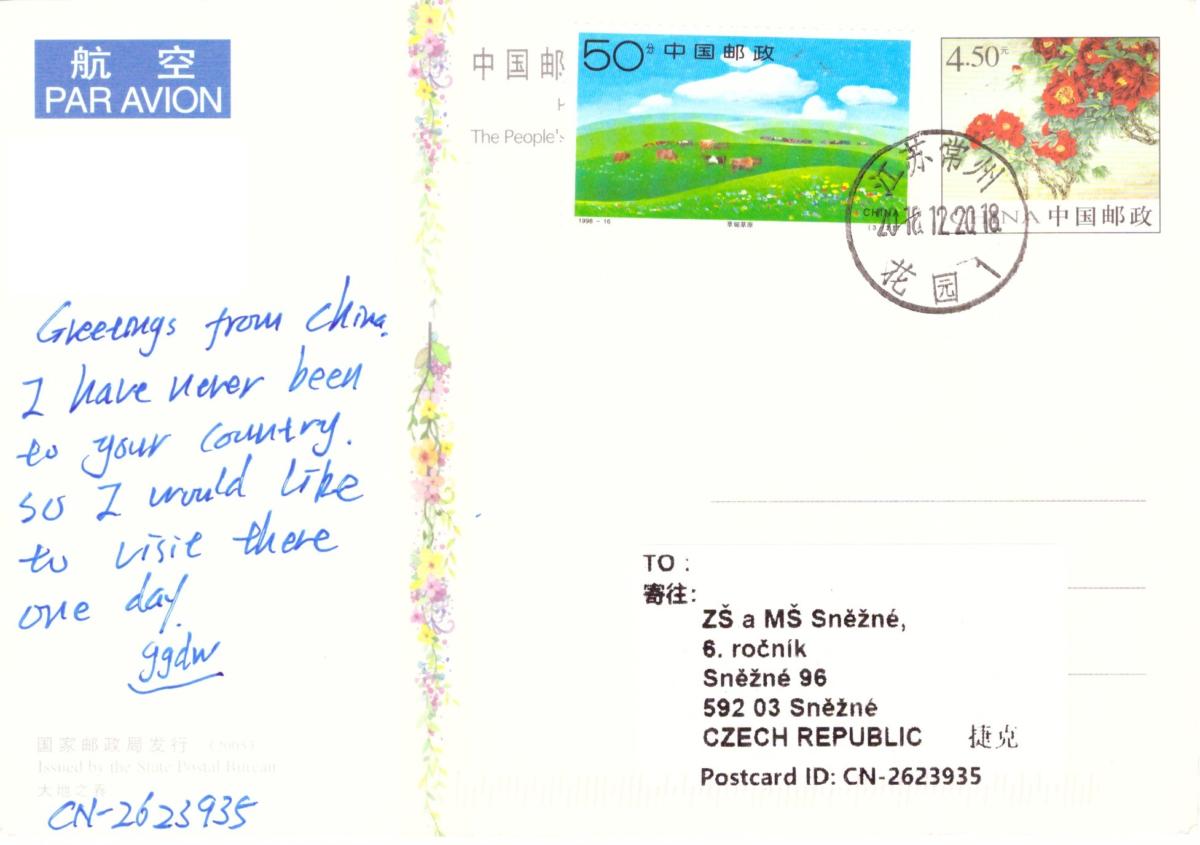 航 空
PAR AVION
中国邮
The People's
50分 中国邮政
CHINA
1998-16
草甸草原
4.50元
中国邮政
江苏常州
2016.12.20.18
花园
Greetings from China.
I have never been
to your country.
so I would like
to visit there
one day.
ggdw
TO :
寄往:
ZŠ a MŠ Sněžné,
6. ročník
Sněžné 96
592 03 Sněžné
CZECH REPUBLIC 捷克
Postcard ID: CN-2623935
国家邮政局发行 (2005)
Issued by the State Postal Bureau
大地之春
CN-2623935